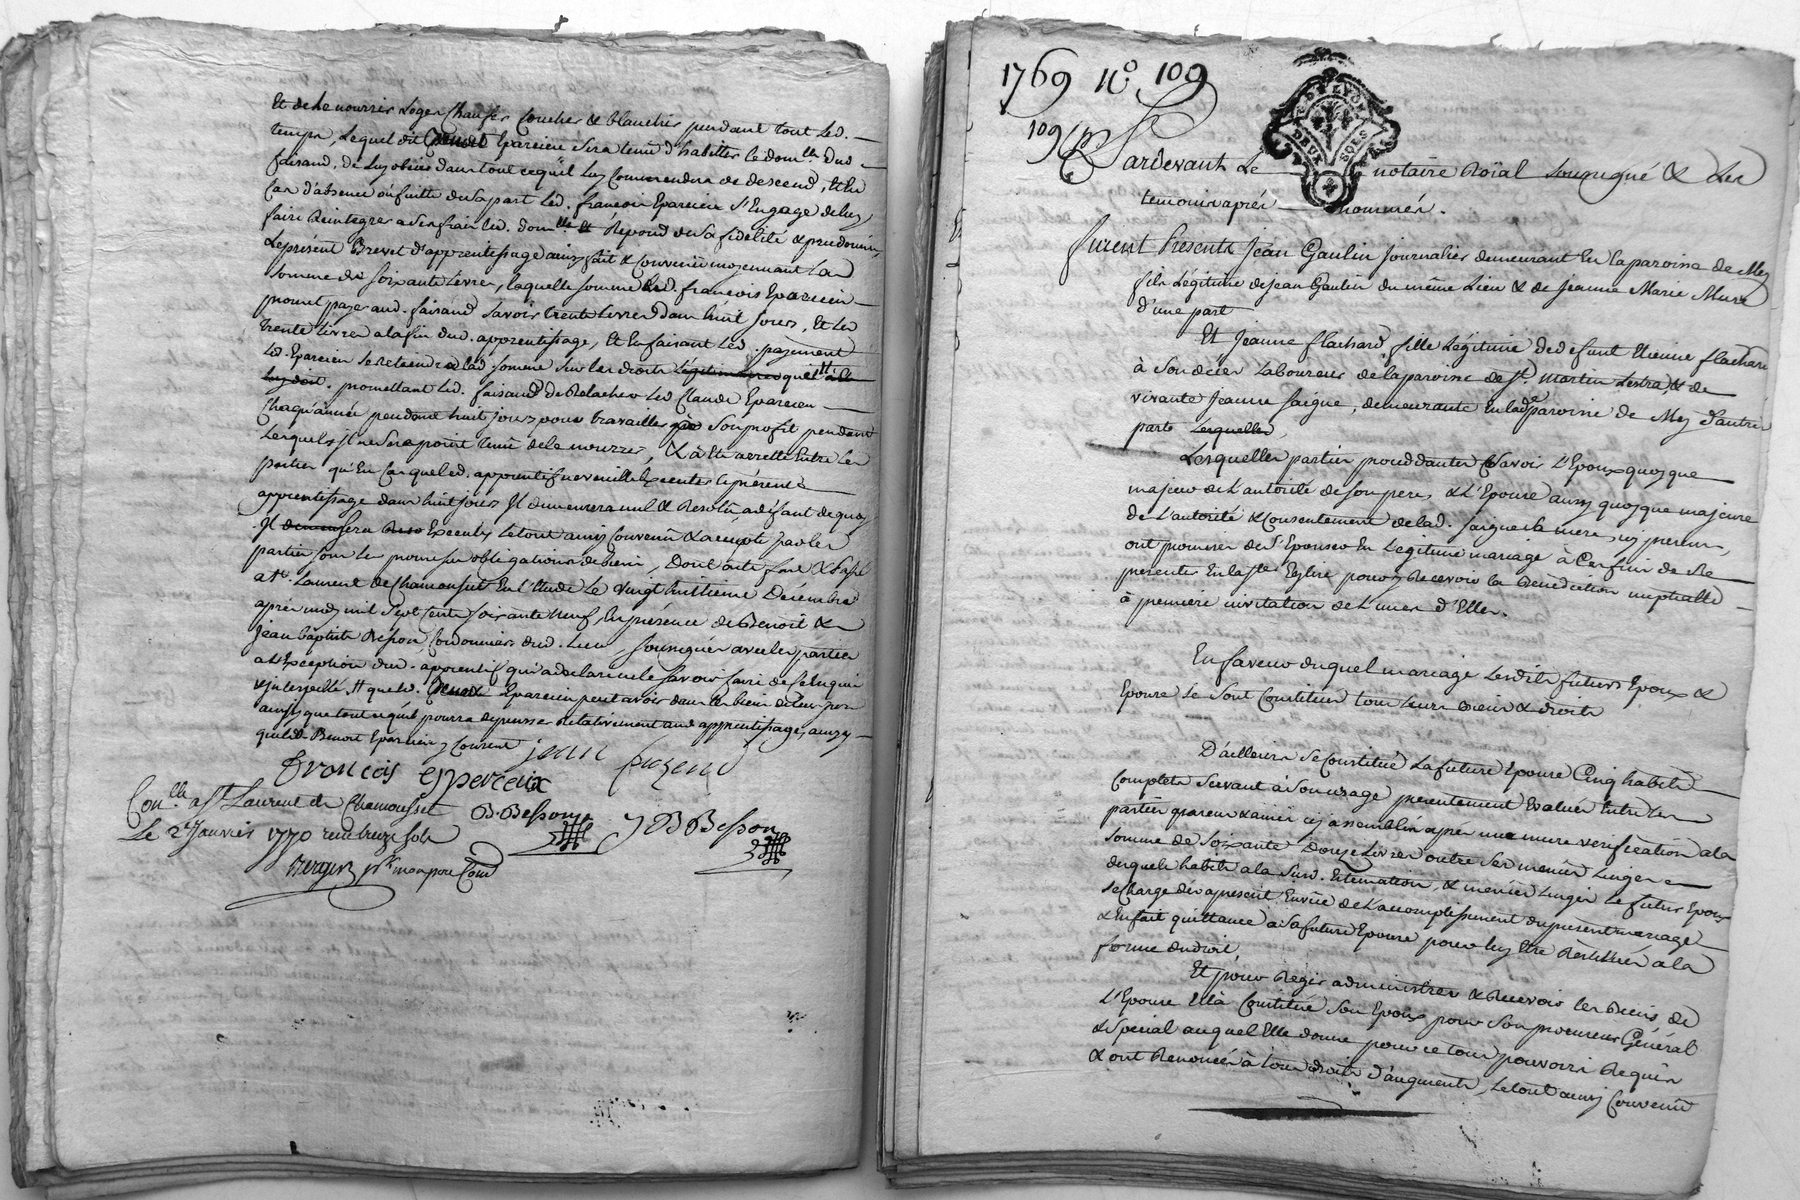 Et de le nourrir Loger Chaufer Coucher & blanchir pendant tout led.
temps, Lequel dit Benoit Eparcieu Sera tenu d'habitter le dom.lle dud
faisand, de luy obéir dans tout ce quil luy Commendra de descend, & En
Cas d'absence ou fuitte de Sa part Led. françois Eparcieu S'Engage de luy
faire Reintegrer a Ses frais led. dom.lle & Répond de Sa fidélité & prudomie,
Le présent Brevet d'apprentissage ainsy fait & Convenu moyennant La
Somme de Soixante Livres, laquelle Somme Led. françois Eparcieu
promet payer aud. faisand Savoir trente Livres dans huit jours, Et Les
trente Livres a la fin dud. apprentissage, Et En faisant Led. payement
Led. Eparcieu Se Retiendra lad. Somme Sur les droits Légitimaires qu'il
luy doit. promettant Led. faisand de Relacher Led Claude Eparcieu
Chaqu'année pendant huit jours pour travailler a Son profit pendant
Lesquels il ne Sera point tenu de le nourrir, & a Eté arretté Entre Les
parties qu'En Cas que led. apprentif ne veuille Executer le présent
apprentissage dans huit jours Il demeurera nul & Resolu a défaut de quoy
Il Sera Executé Le tout ainsy Convenu & accepté par les
parties Sous les promesses obligations de biens, Dont acte fait & passé
a St. Laurent de Chamousset En l'Etude Le vingt huittieme Décembre
après midy mil Sept Cents Soixante neuf, En présence de Benoit &
Jean baptiste Besson Cordonniers dud. Lieu, Soussignés avec les parties
a L'Exception dud. apprentif qui a déclaré ne le Savoir faire de Ce Enquis
& interpellé, # que led. Benoit Eparcieu peut avoir dans les biens de leur père
ainsy que tout ce qu'il pourra dépenser Relativement aud apprentissage, ainsy
que led. Benoit Eparcieu y Consent
jean fezend
françois esparcieux
Con.lle a St. Laurent de Chamousset
B. Besson
J B Besson
Le 2 Janvier 1770 reçu treize Sols
Berger pr. mon pere Com
1769 N.o 109
109
G DE LYON
DEUX SOLS
Pardevant Le notaire Roïal Soussigné & Les
temoins après nommés.
furent Présents Jean Gaulin Journalier demeurant En la paroisse de Mey
fils Légitime de jean Gaulin du même Lieu & de Jeanne Marie Mure
d'une part
Et Jeanne flachard, fille Légitime de defunt Etienne flachard
à Son décés Laboureur de la paroisse de St. Martin Lestra, & de
vivante Jeanne Saigne, demeurante En lad.e paroisse de Mey d'autre
parts Lesquelles,
Lesquelles parties procédantes Savoir L'Epoux quoyque
majeur de L'autorité de Son pere, & L'Epouse aussy quoyque majeure
de L'autorité & Consentement de lad. Saigne Sa mere, icy présens,
ont promis de S'Epouser En Légitime mariage à Ces fins de Se
présenter En la Ste. Eglise pour y Recevoir la Bénédiction nuptialle
à premiere invitation de L'une d'Elles.
En faveur duquel mariage Lesdits futurs Epoux &
Epouse Se Sont Constitués tous Leurs biens & droits
D'ailleurs Se Constitue La future Epouse Cinq habits
Complets Servant à Son usage présentement Evalués Entre les
parties parens & amis icy assemblés après une mure vérification a la
Somme de Soixante Douze Livres outre Ses menus Linges
desquels habits a la Susd. Estimation, & menus Linges Le futur Epoux
Se Charge dès apresent Envüe de L'accomplissement du présent mariage
& En fait quittance à Sa future Epouse pour luy Etre Restitués a la
forme du droit,
Et pour Regir administrer & Recevoir les Biens de
L'Epouse Ella Constitue Son Epoux pour Son procureur Général
& Spécial auquel Elle donne pour ce tous pouvoirs Requis
& ont Renoncés à tous droits d'augments, Le tout ainsy Convenu